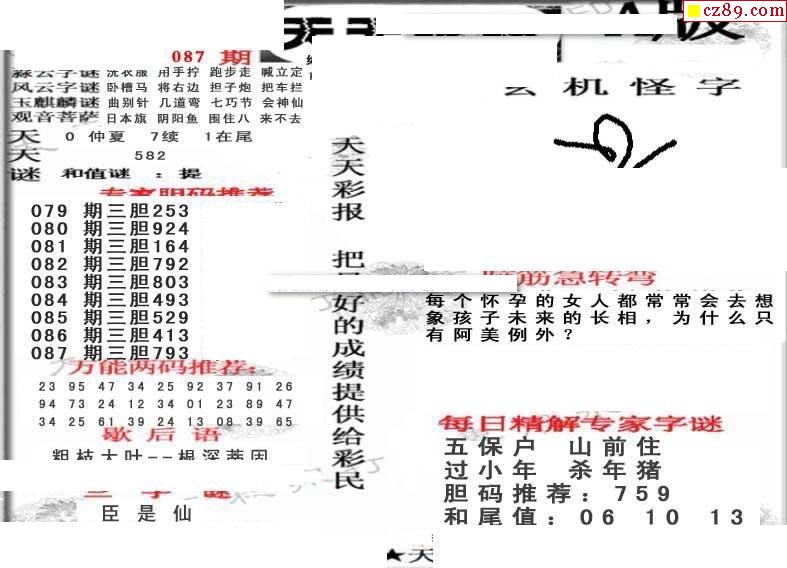 cz89.com
版
087 期
霖云字谜 洗衣服 用手拧 跑步走 喊立定
风云字谜 卧槽马 将右边 担子炮 把车拦
玉麒麟谜 曲别针 几道弯 七巧节 会神仙
观音菩萨 日本旗 阴阳鱼 围住八 来不去
天 0 仲夏 7续 1在尾
天 582
谜 和值谜 ：提
专家胆码推荐
079 期三胆253
080 期三胆924
081 期三胆164
082 期三胆792
083 期三胆803
084 期三胆493
085 期三胆529
086 期三胆413
087 期三胆793
万能两码推荐:
23 95 47 34 25 92 37 91 26
94 73 24 12 34 01 23 89 47
34 25 61 39 24 13 08 39 65
歇后语
粗枝大叶--根深蒂固
三字谜
臣是仙
天天彩报 把最好的成绩提供给彩民
云机怪字
脑筋急转弯
每个怀孕的女人都常常会去想
象孩子未来的长相，为什么只
有阿美例外？
每日精解专家字谜
五保户 山前住
过小年 杀年猪
胆码推荐：759
和尾值：06 10 13
★天